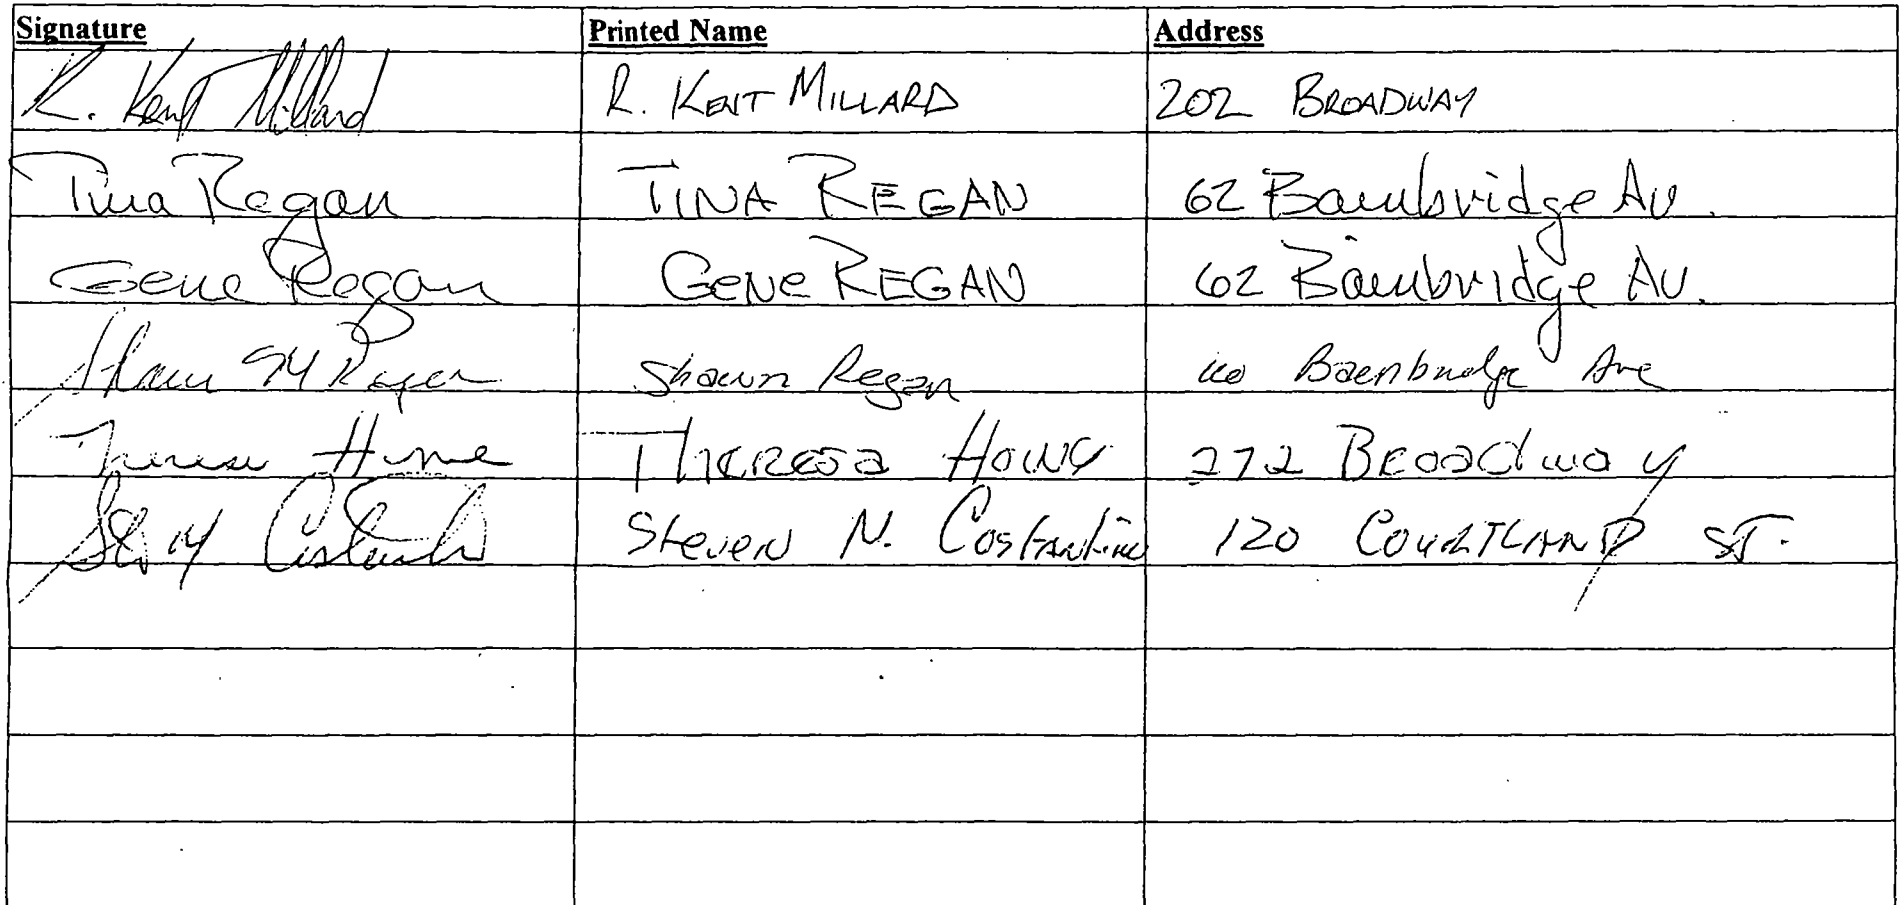 Signature Printed Name Address
R. Kent Millard R. KENT MILLARD 202 BROADWAY
Tina Regan TINA REGAN 62 Bainbridge Av.
Gene Regan GENE REGAN 62 Bainbridge Av.
Shawn M Regan Shawn Regan Baenbridge Ave
Theresa THERESA 272 BROADWAY
Steven N. Costantino 120 COURTLAND ST.